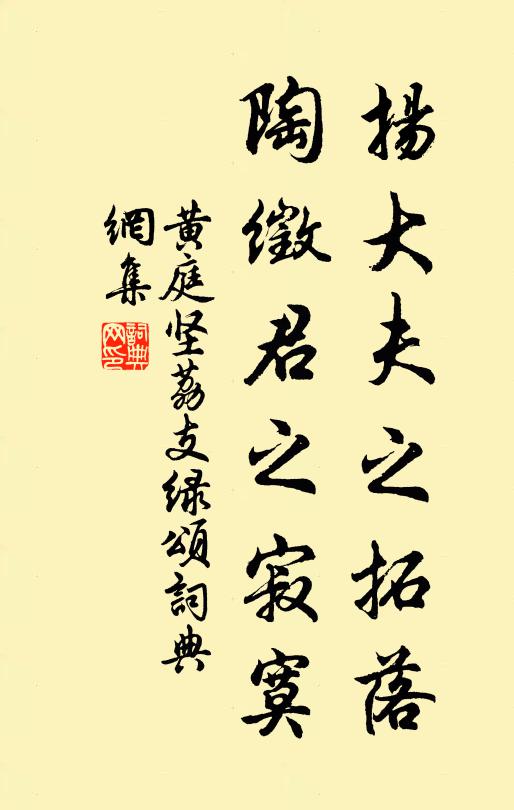 揚大夫之拓落
陶徵君之寂寞
黄庭坚荔支緑頌詞典
網集
詞典
网印